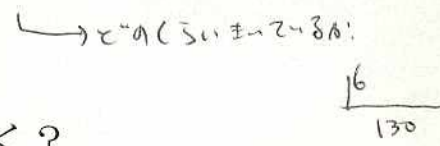 →どのくらいきいているか?
16
130
く?